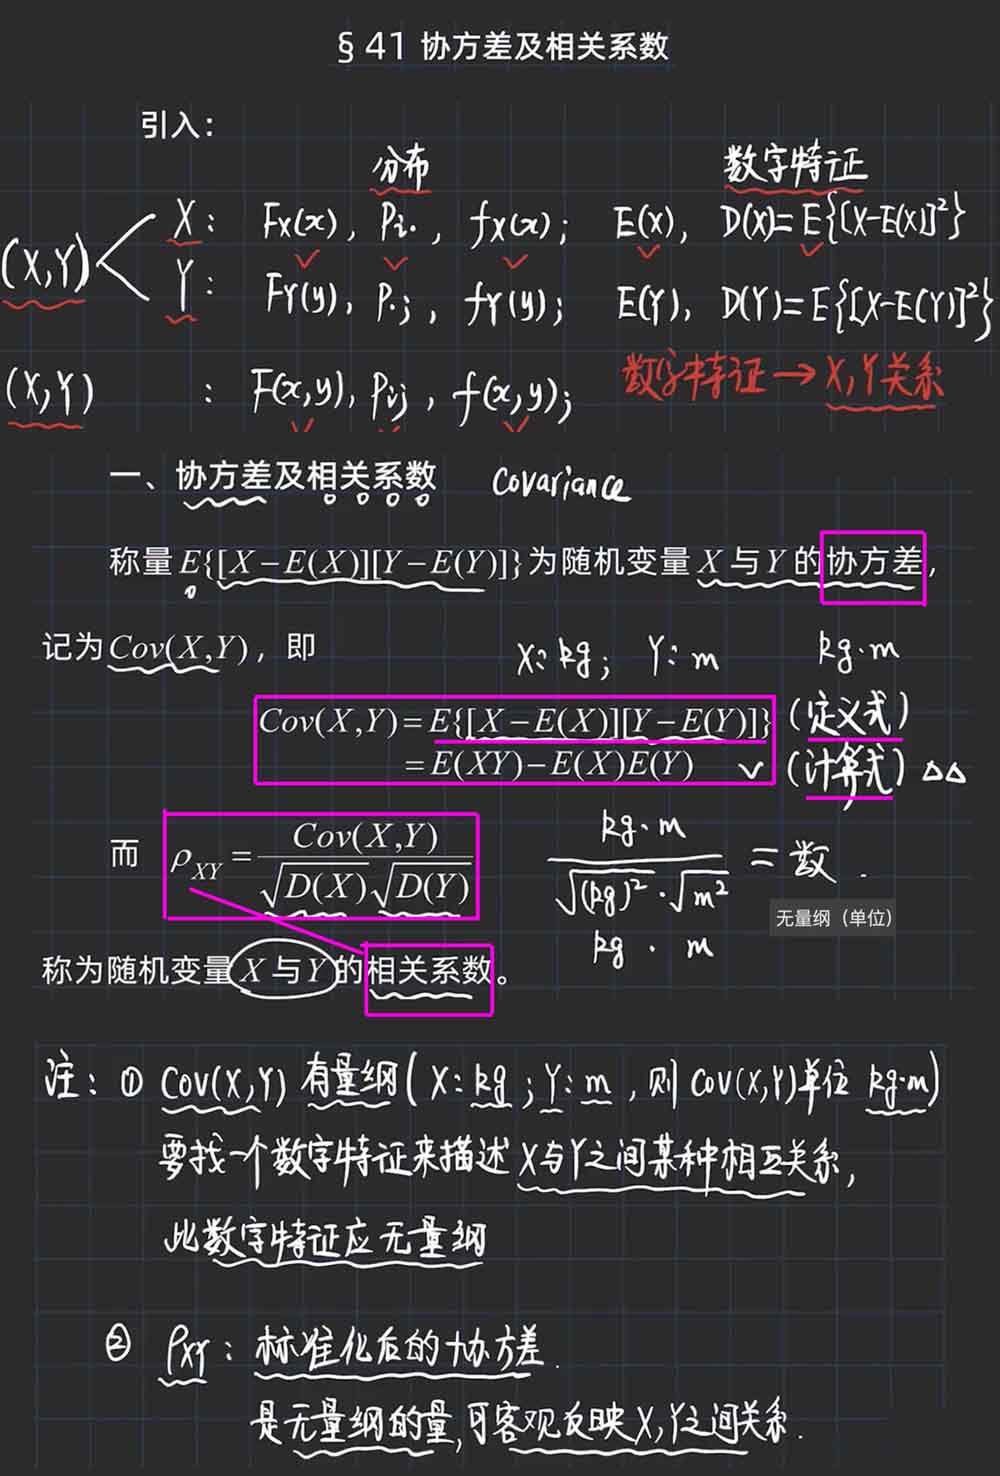 § 41 协方差及相关系数
引入：
分布 数字特征
(X,Y) X： Fx(x), Pi·, fx(x)； E(X), D(X)=E{[X-E(X)]²}
Y： FY(y), P·j, fY(y)； E(Y), D(Y)=E{[X-E(Y)]²}
(X,Y) ： F(x,y), Pij, f(x,y)； 数字特征→X,Y关系
一、协方差及相关系数 Covariance
称量 E{[X-E(X)][Y-E(Y)]} 为随机变量 X 与 Y 的协方差，
记为Cov(X,Y)，即 X：kg； Y：m kg·m
Cov(X,Y)=E{[X-E(X)][Y-E(Y)]} (定义式)
=E(XY)-E(X)E(Y) ✓ (计算式) △△
而 ρXY = Cov(X,Y) / √D(X) √D(Y) kg·m / √(kg)²·√m² = 数.
无量纲（单位）
kg · m
称为随机变量 X 与 Y 的相关系数。
注：① Cov(X,Y) 有量纲(X：kg；Y：m，则Cov(X,Y)单位 kg·m)
要找一个数字特征来描述X与Y之间某种相互关系，
此数字特征应无量纲
② ρXY：标准化后的协方差.
是无量纲的量,可客观反映X,Y之间关系.